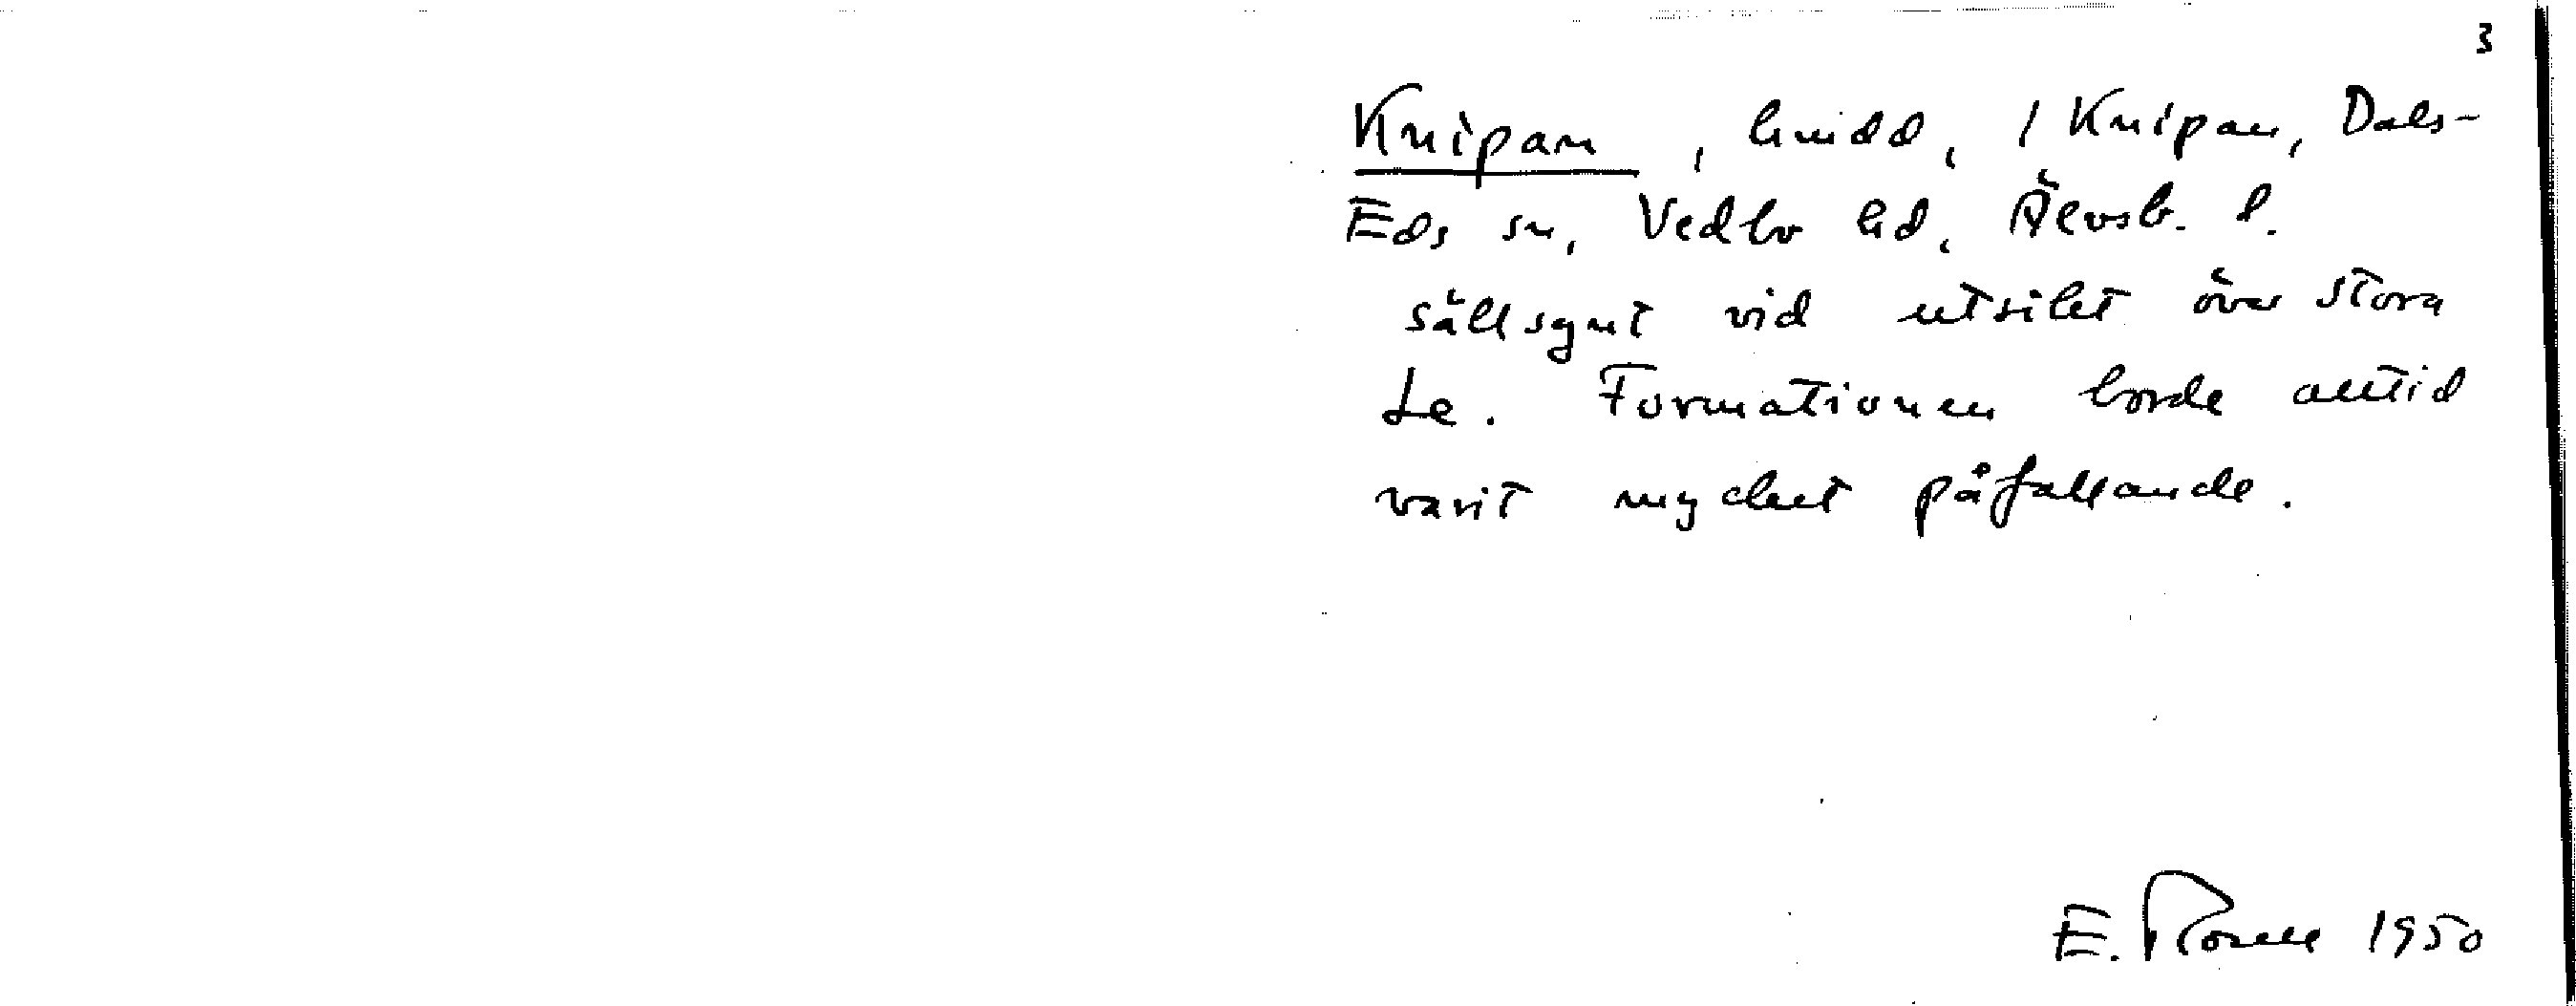 3
Knipan, hmdd, 1 Knipan, Dals-
Eds sn, Vedbo hd, Älvsb. l.
sällsynt vid utsikt över Stora
Le. Formationen borde alltid
varit mycket påfallande.
E. Rosell 1950